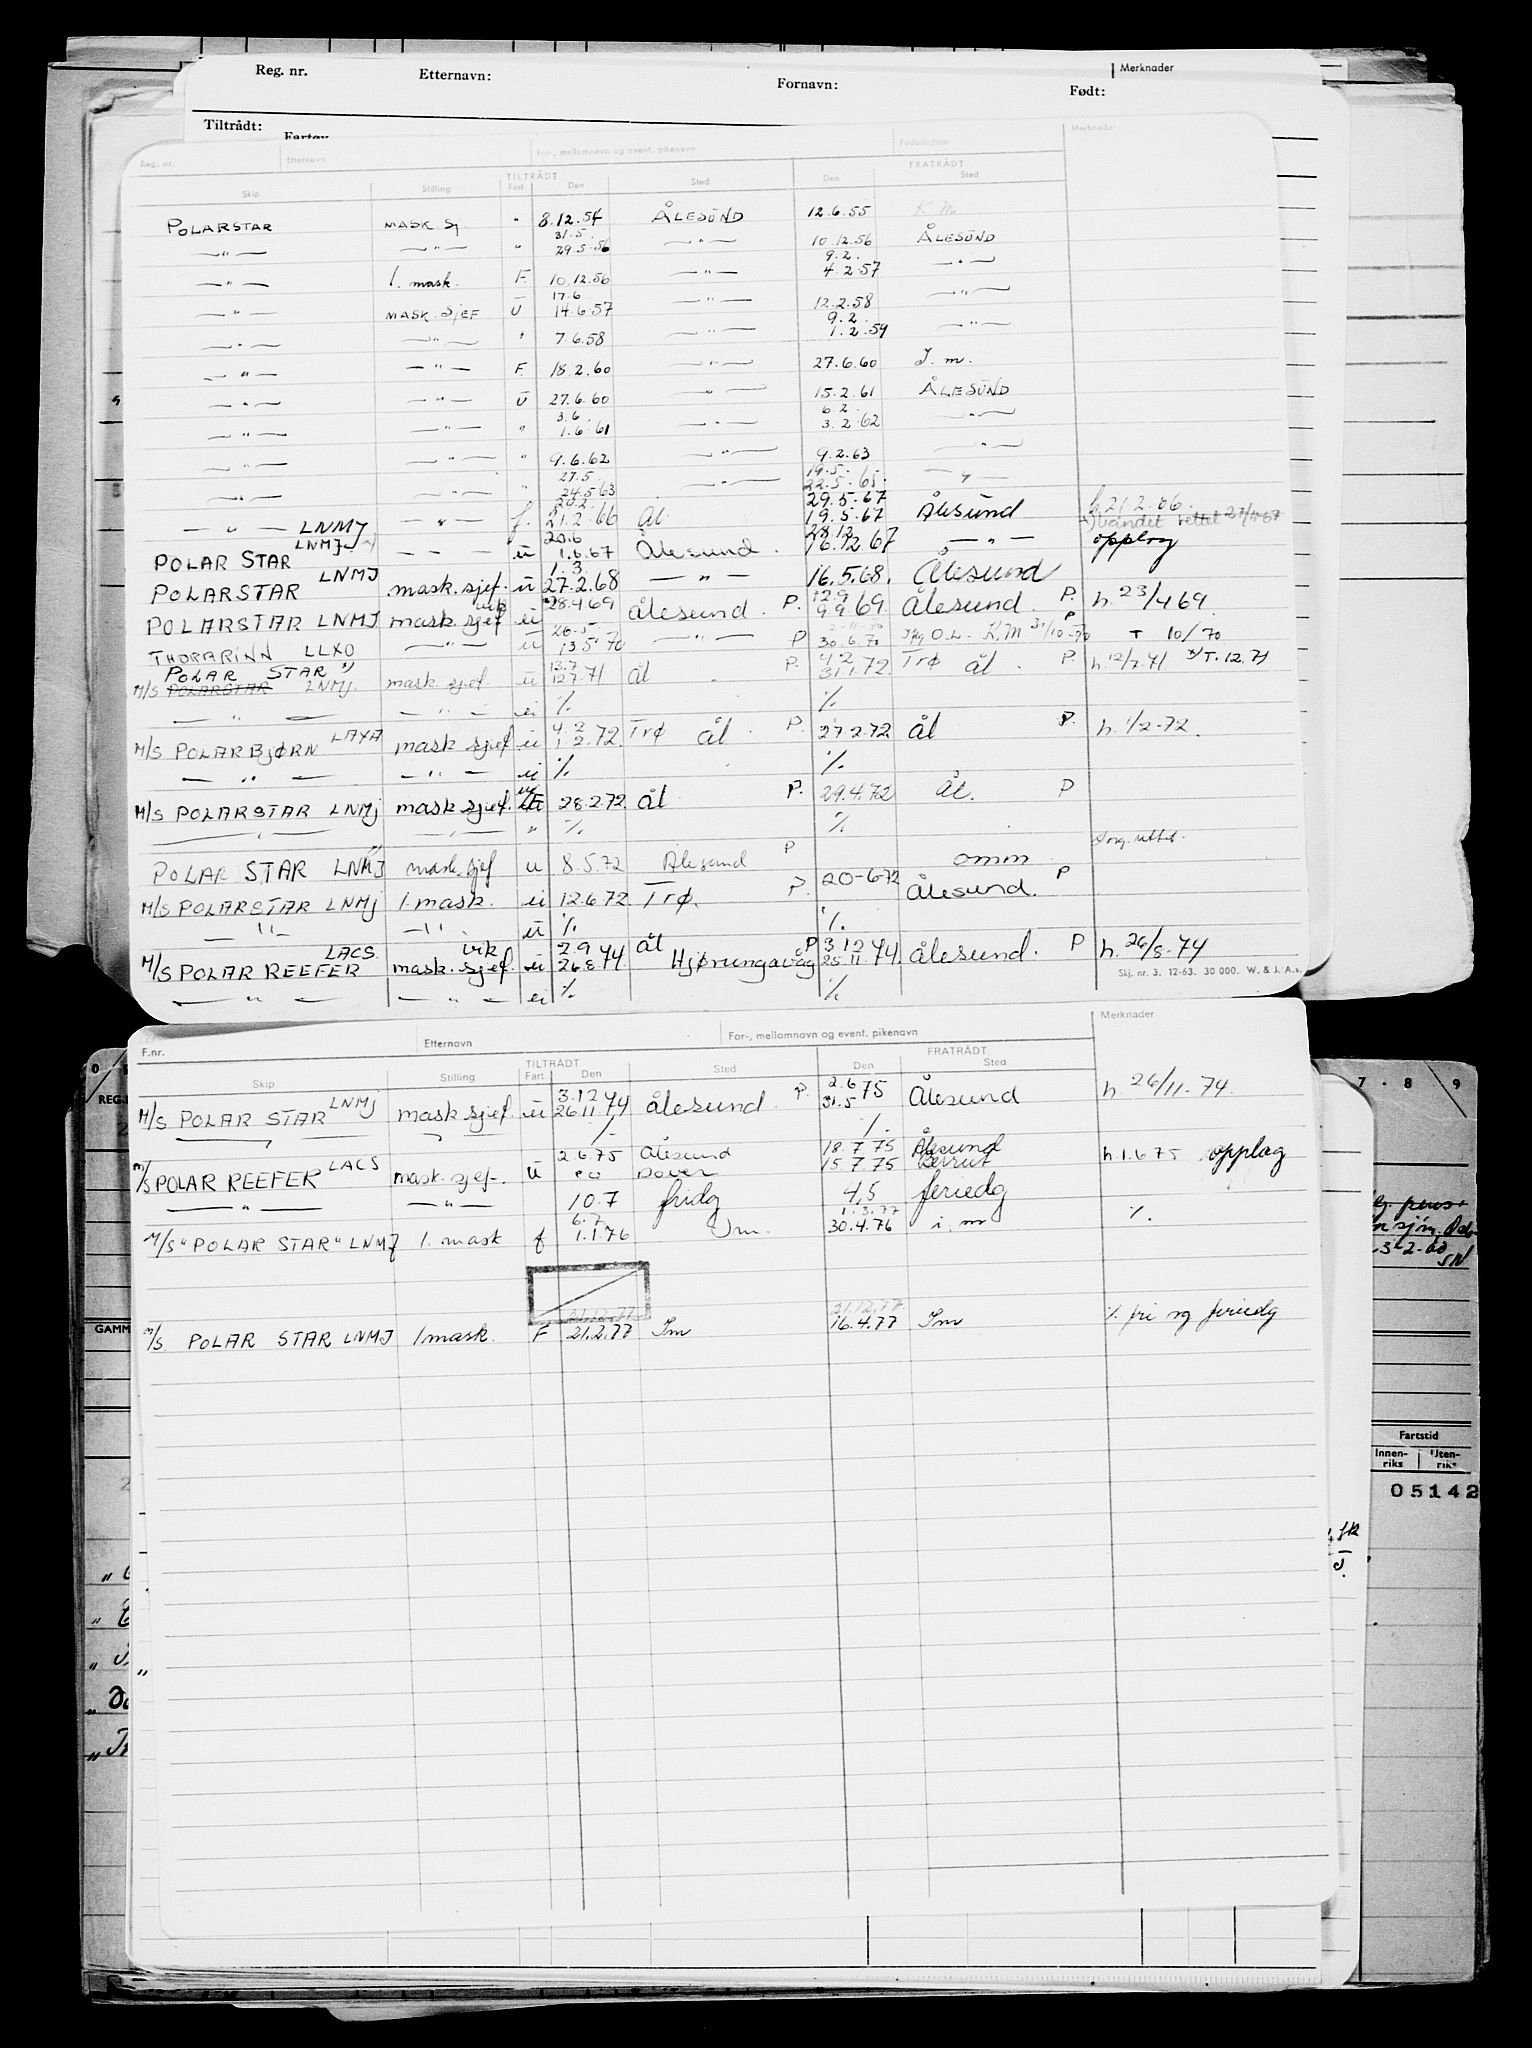 Reg. nr. Etternavn: Fornavn: Født: Merknader
Tiltrådt: Fartøy
Reg. nr. Etternavn For-, mellomnavn og event. pikenavn Fødselsdato Merknader
TILTRÅDT FRATRÅDT
Skip Stilling Fart Den Sted Den Sted
POLARSTAR MASK. Sj. " 8.12.54 ÅLESUND 12.6.55 K M
31.5.
—"— —"— " 29.5.56 —"— 10.12.56 ÅLESUND
9.2.
—"— 1. mask. F. 10.12.56 —"— 4.2.57 —"—
17.6
—"— MASK. SJEF U 14.6.57 —"— 12.2.58 —"—
9.2.
—"— —"— " 7.6.58 —"— 1.2.59 —"—
—"— —"— F. 18.2.60 —"— 27.6.60 I. m.
—"— —"— U 27.6.60 —"— 15.2.61 ÅLESUND
3.6. 6.2.
—"— —"— " 1.6.61 —"— 3.2.62 —"—
—"— —"— " 9.6.62 —"— 9.2.63 —"—
27.5. 19.5.
—"— —"— " 24.5.63 —"— 22.5.65. —"—
29.5.67
—"— LNMJ —"— f. 21.2.66 Ål. 19.5.67 Ålesund h. 21 2.66.
20.6 28.12
POLAR STAR LNMJ — " — ü 1.6.67 Ålesund. 16.12 67 —"— opplag
1.3.
POLARSTAR LNMJ mask.sjef. ü 27.2.68 —"— 16.5.68. Ålesund
vik 12.9
POLARSTAR LNMJ mask.sjef ü 28.4.69 Ålesund. P. 9.9.69. Ålesund. P. h. 23/4 69.
26.5
THORARINN LLXO —"— ü 13.5.70 —"— P 30.6.70 K.M 31/10-70 P T 10/70
POLAR STAR
13.7 4.2
M/S POLARSTAR LNMJ. mask. sjef. ü 12.7.71 ål P. 31.1.72. Trø ål. P. h. 12/7.71 T. 12.71
—"— —"— ei % %
4.2
M/S POLARBJØRN LAXA mask. sjef. ü 1.2.72. Trø ål. P. 27.2.72 ål P. h. 1/2-72.
—"— —"— ei % %
M/S POLARSTAR LNMJ mask. sjef. 28.2.72. ål P. 29.4.72 ål. P
—"— —"— " % %
POLAR STAR LNMJ mask. sjef u 8.5.72 Ålesund P omm
M/S POLARSTAR LNMJ 1. mask. ei 12.6.72 Trø. P. 20-6-72 Ålesund. P
—"— —"— ü % %
LACS. vik 2.9 ål P 3.12
M/S POLAR REEFER mask. sjef. ü 26.8 74 Hjørungavåg 25.11 74. ålesund. P h. 26/8-74
—"— —"— ei % %
Skj. nr. 3. 12-63. 30 000. W. & J. A.s.
F.nr. Etternavn For-, mellomnavn og event. pikenavn Merknader
TILTRÅDT FRATRÅDT
Skip Stilling Fart Den Sted Den Sted
3.12 2.6
M/S POLAR STAR LNMJ mask sjef. ü 26.11 74 ålesund. P. 31.5 75 Ålesund h. 26/11-74.
—"— —"— % %
2.6.75 ålesund 18.7.75 Ålesund
M/S POLAR REEFER LACS mask. sjef. ü ca Dover 15.7.75 Beirut h.1.6.75 opplag
—"— —"— 10.7 fridg 4,5 feriedg
6.7. 1.3.77
M/S "POLAR STAR" LNMJ 1. mask f 1.1.76 Im. 30.4.76 i. m %.
31.12.77 31.12.77
M/S. POLAR STAR LNMJ 1 mask. F 21.2.77 Im 16.4.77 Im % fri og feriedg
REG.
GAMM
7 - 8 9
Fartstid
Innen-riks Uten-riks
05142